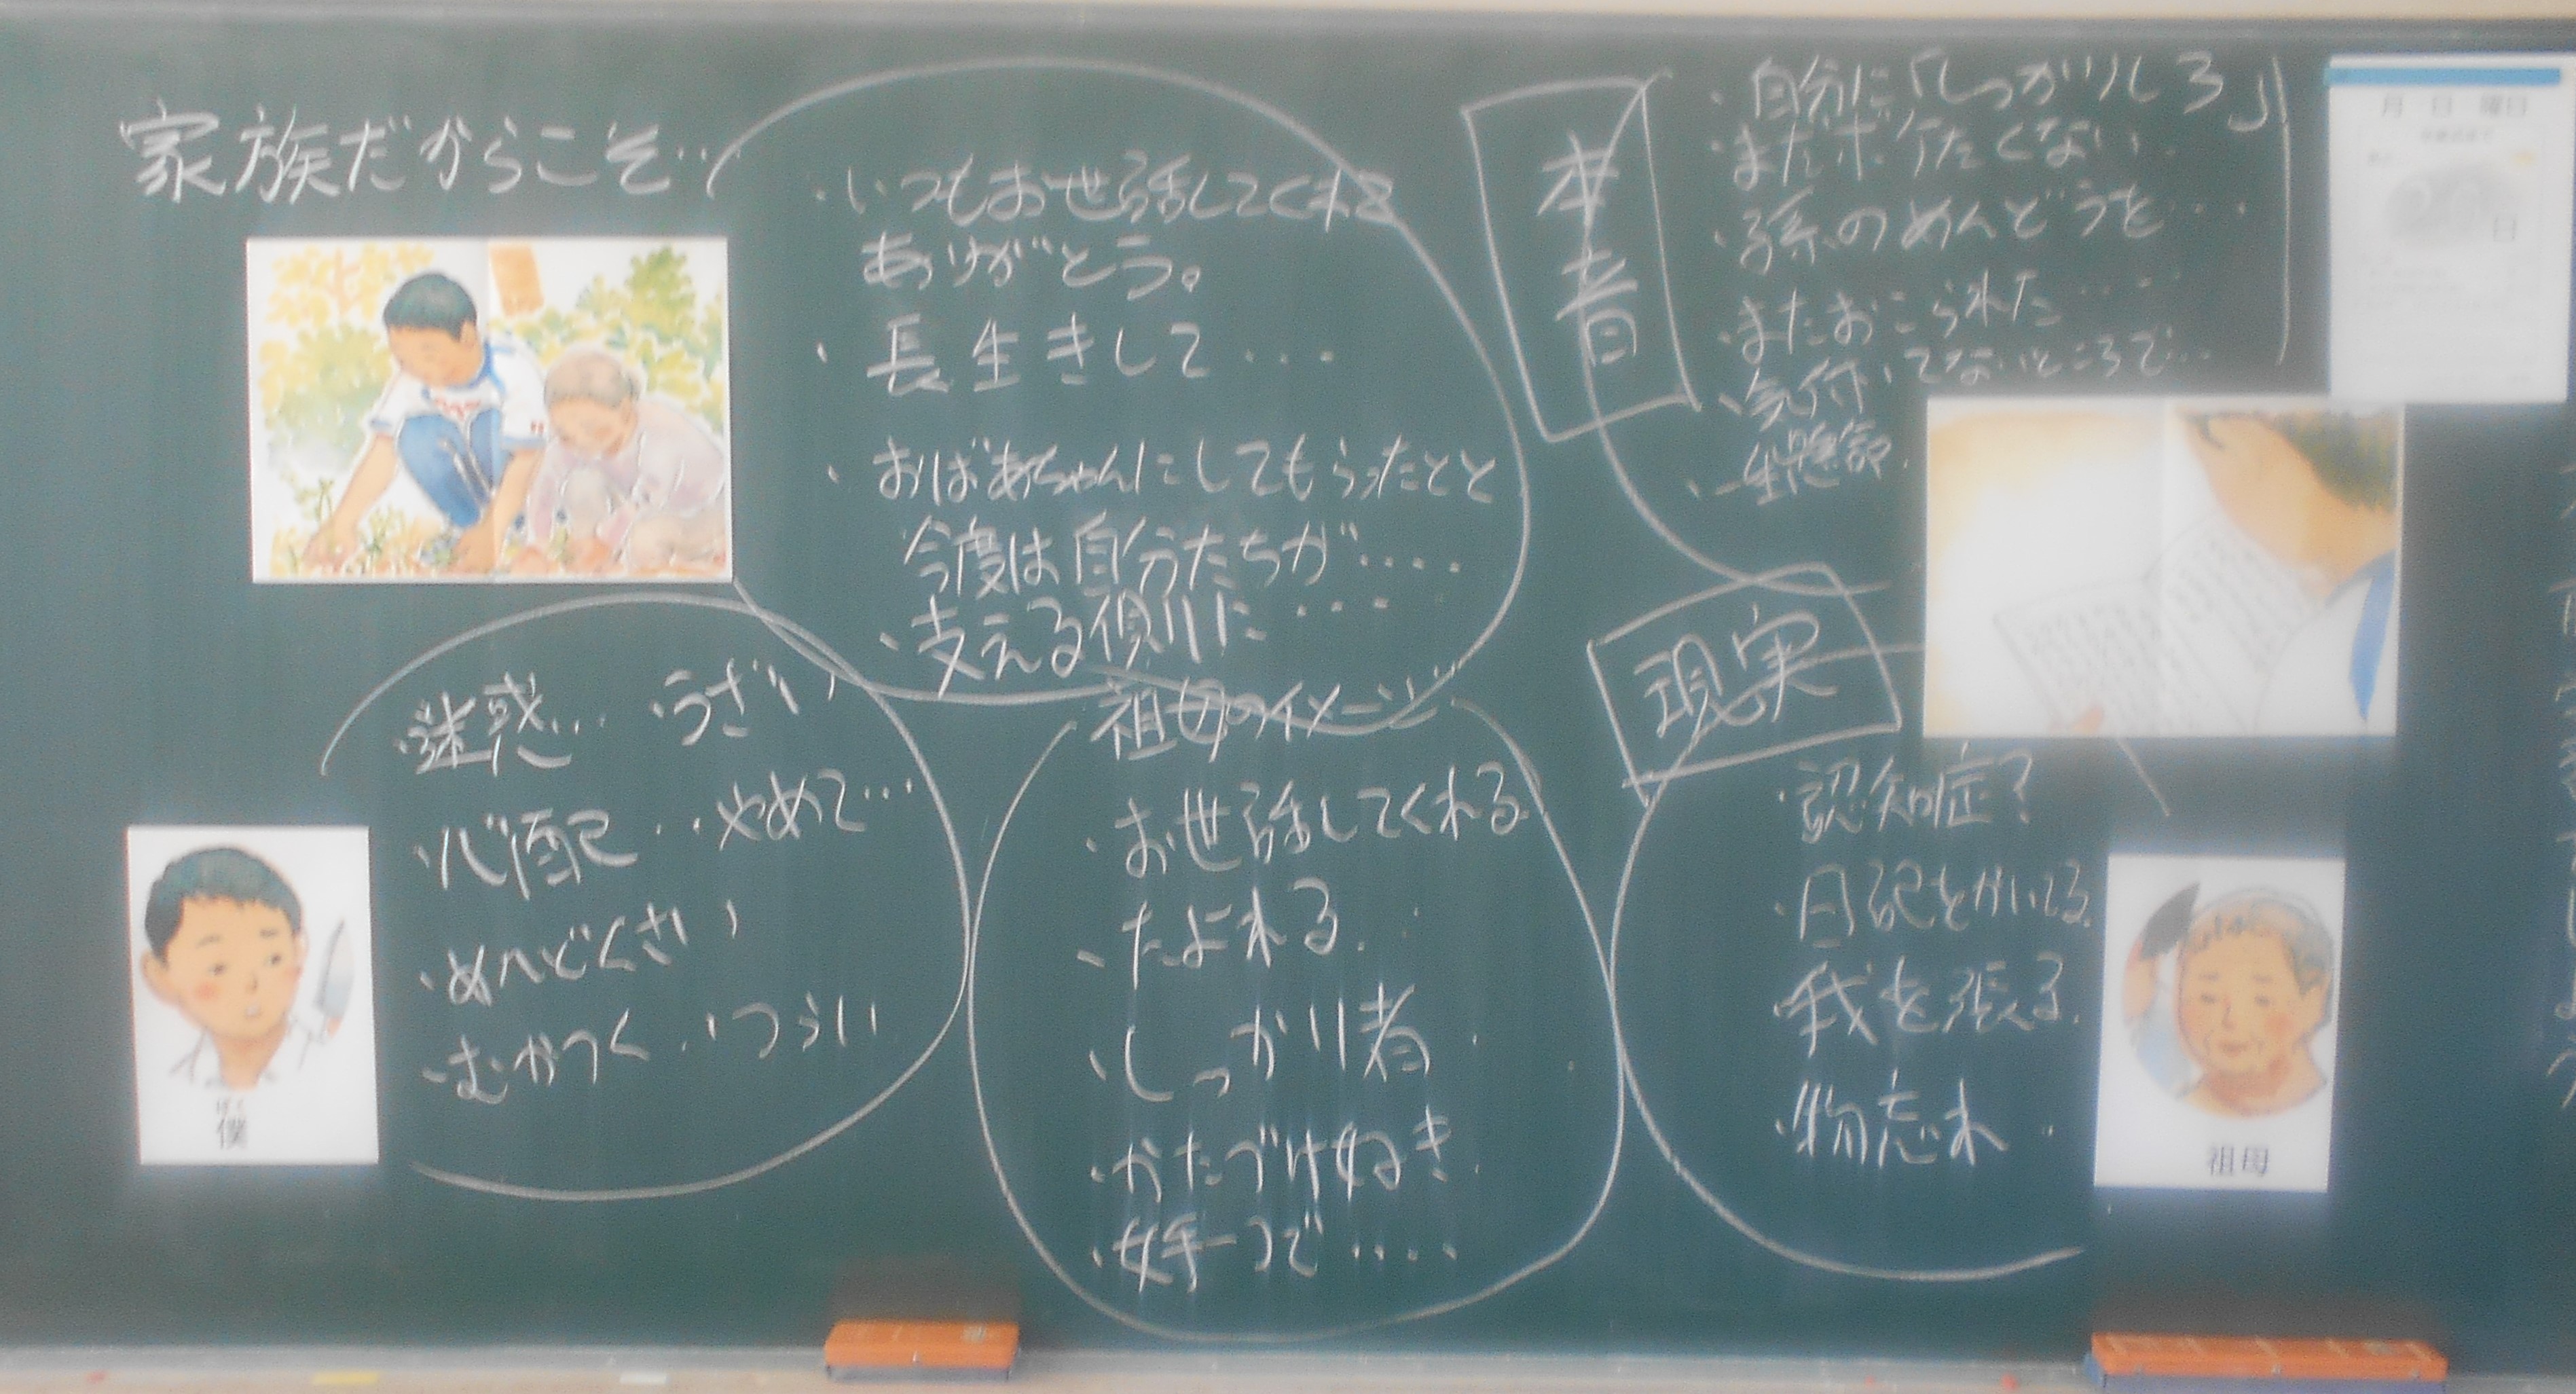 家族だからこそ…
・いつもお世話してくれて
ありがとう。
・長生きして...
・おばあちゃんにしてもらったこと
今度は自分たちが....
・支える側に...
本音
・自分に「しっかりしろ」
・まだボケたくない
・孫のめんどうを...
・またおこられた....
・気付いてないところで...
・一生懸命
月 日 曜日
日
現実
・認知症?
・日記をかいてる
・我を張る
・物忘れ
祖母
祖母のイメージ
・お世話してくれる
・たよれる
・しっかり者
・かたづけ好き
・女手一つで....
・迷惑... ・うざい
・心配 ・やめて...
・めんどくさい
・むかつく ・つらい
ぼく
僕